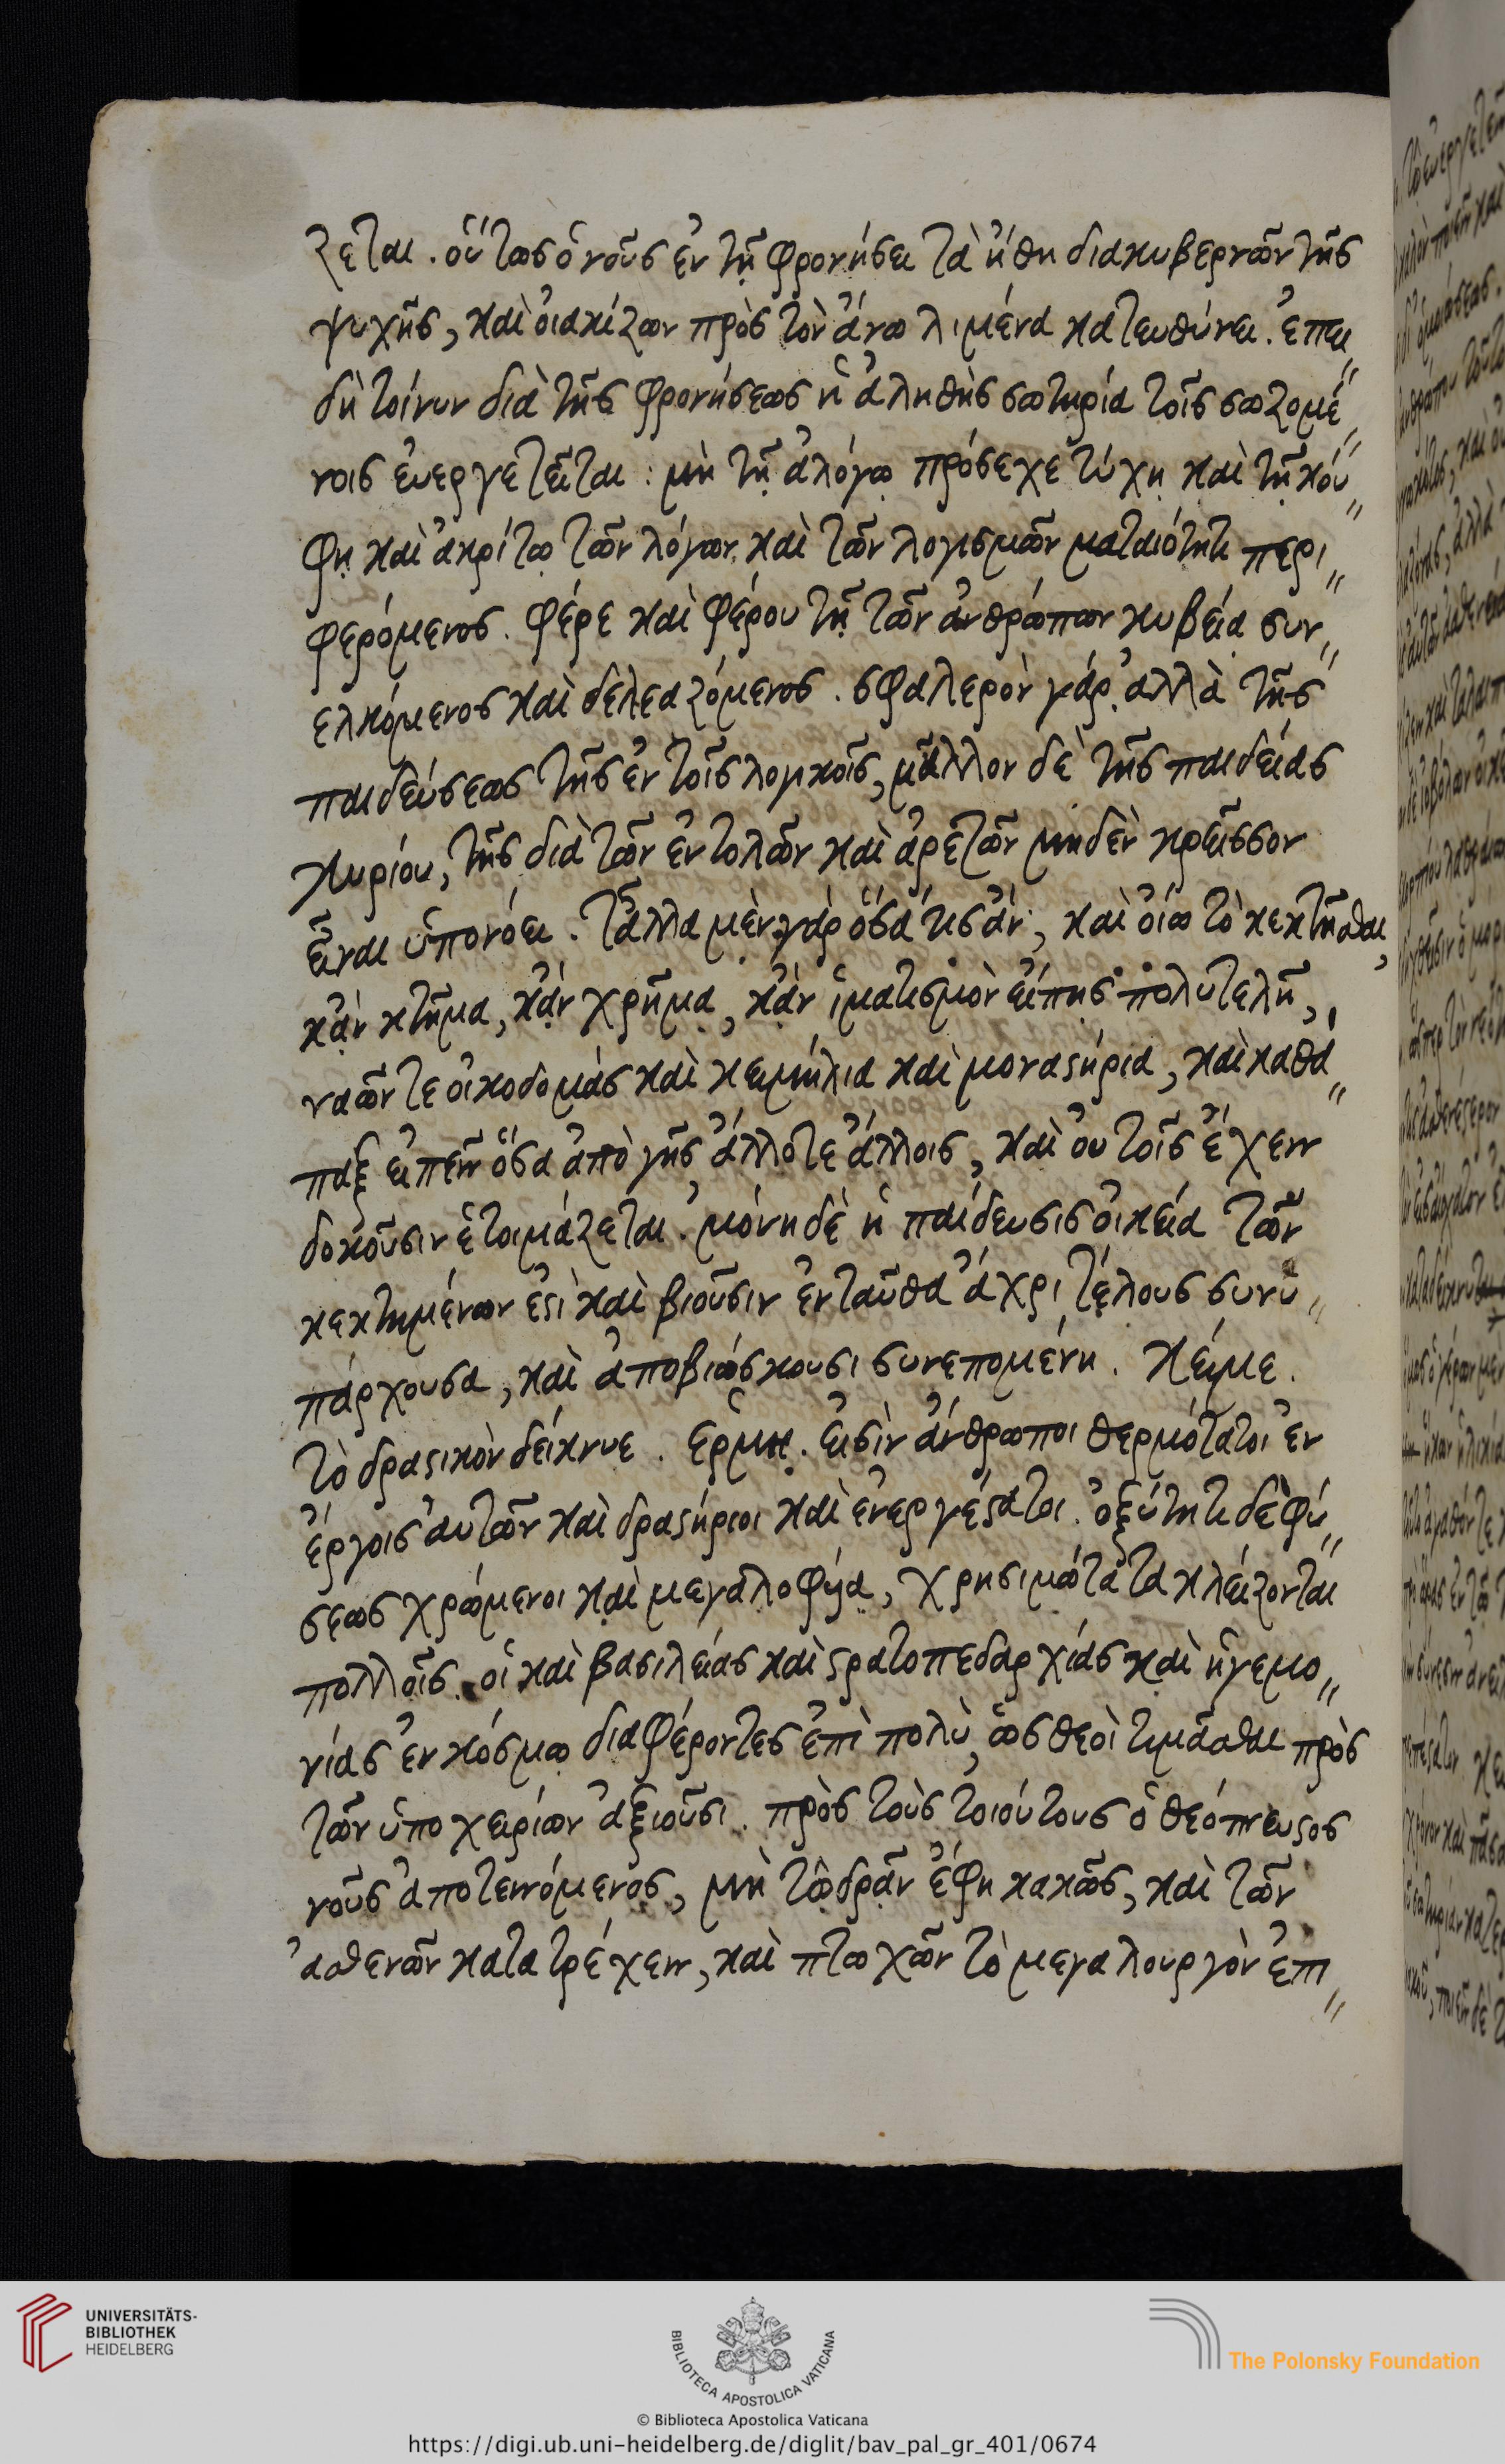 ζεται. οὕτως ὁ νοῦς ἐν τῇ φρονήσει τὰ ἤθη διακυβερνῶν τῆς
ψυχῆς, καὶ οἰακίζων πρὸς τὸν ἄνω λιμένα κατευθύνει. ἐπει〃
δὴ τοίνυν διὰ τῆς φρονήσεως ἡ ἀληθὴς σωτηρία τοῖς σωζομέ〃
νοις εὐεργετεῖται: μὴ τῇ ἀλόγῳ πρόσεχε τύχῃ καὶ τῇ κού〃
φῃ καὶ ἀκρίτῳ τῶν λόγων καὶ τῶν λογισμῶν ματαιότητι περι〃
φερόμενος. φέρε καὶ φέρου τῇ τῶν ἀνθρώπων κυβείᾳ συν〃
ελκόμενος καὶ δελεαζόμενος. σφαλερὸν γάρ. ἀλλὰ τῆς
παιδεύσεως τῆς ἐν τοῖς λογικοῖς, μᾶλλον δὲ τῆς παιδείας
κυρίου, τῆς διὰ τῶν ἐντολῶν καὶ ἀρετῶν μηδὲν κρεῖσσον
εἶναι ὑπονόει. τἄλλα μὲν γὰρ ὅσά τις ἂν, καὶ οἵῳ τὸ κεκτῆσθαι,
κᾂν κτῆμα, κᾂν χρῆμα, κᾂν ἱματισμὸν εἴπῃς πολυτελῆ,
ναῶν τε οἰκοδομάς καὶ κειμήλια καὶ μοναστήρια, καὶ καθά〃
παξ εἰπεῖν ὅσα ἀπὸ γῆς ἄλλοτε ἄλλοις, καὶ οὐ τοῖς ἔχειν
δοκοῦσιν ἑτοιμάζεται. μόνη δὲ ἡ παίδευσις οἰκεία τῶν
κεκτημένων ἐστὶ καὶ βιοῦσιν ἐνταῦθα ἄχρι τέλους συνυ〃
πάρχουσα, καὶ ἀποβιώσκουσι συνεπομένη. κείμε.
τὸ δραστικὸν δείκνυε. ἑρμη. εἰσὶν ἄνθρωποι θερμότατοι ἐν
ἔργοις αὐτῶν καὶ δραστήριοι καὶ ἐνεργέστατοι. ὀξύτητι δὲ φύ〃
σεως χρώμενοι καὶ μεγαλοφυΐᾳ, χρησιμώτατα κλεΐζονται
πολλοῖς. οἳ καὶ βασιλείας καὶ στρατοπεδαρχίας καὶ ἡγεμο〃
νίας ἐν κόσμῳ διαφέροντες ἐπὶ πολὺ, ὡς θεοὶ τιμᾶσθαι πρὸς
τῶν ὑποχειρίων ἀξιοῦσι. πρὸς τοὺς τοιούτους ὁ θεόπνευστος
νοῦς ἀποτεινόμενος, μὴ τῷ δρᾶν ἔφη κακῶς, καὶ τῶν
ἀσθενῶν κατατρέχειν, καὶ πτωχῶν τὸ μεγαλουργὸν ἐπι〃
UNIVERSITÄTS-
BIBLIOTHEK
HEIDELBERG
BIBLIOTECA APOSTOLICA VATICANA
The Polonsky Foundation
© Biblioteca Apostolica Vaticana
https://digi.ub.uni-heidelberg.de/diglit/bav_pal_gr_401/0674